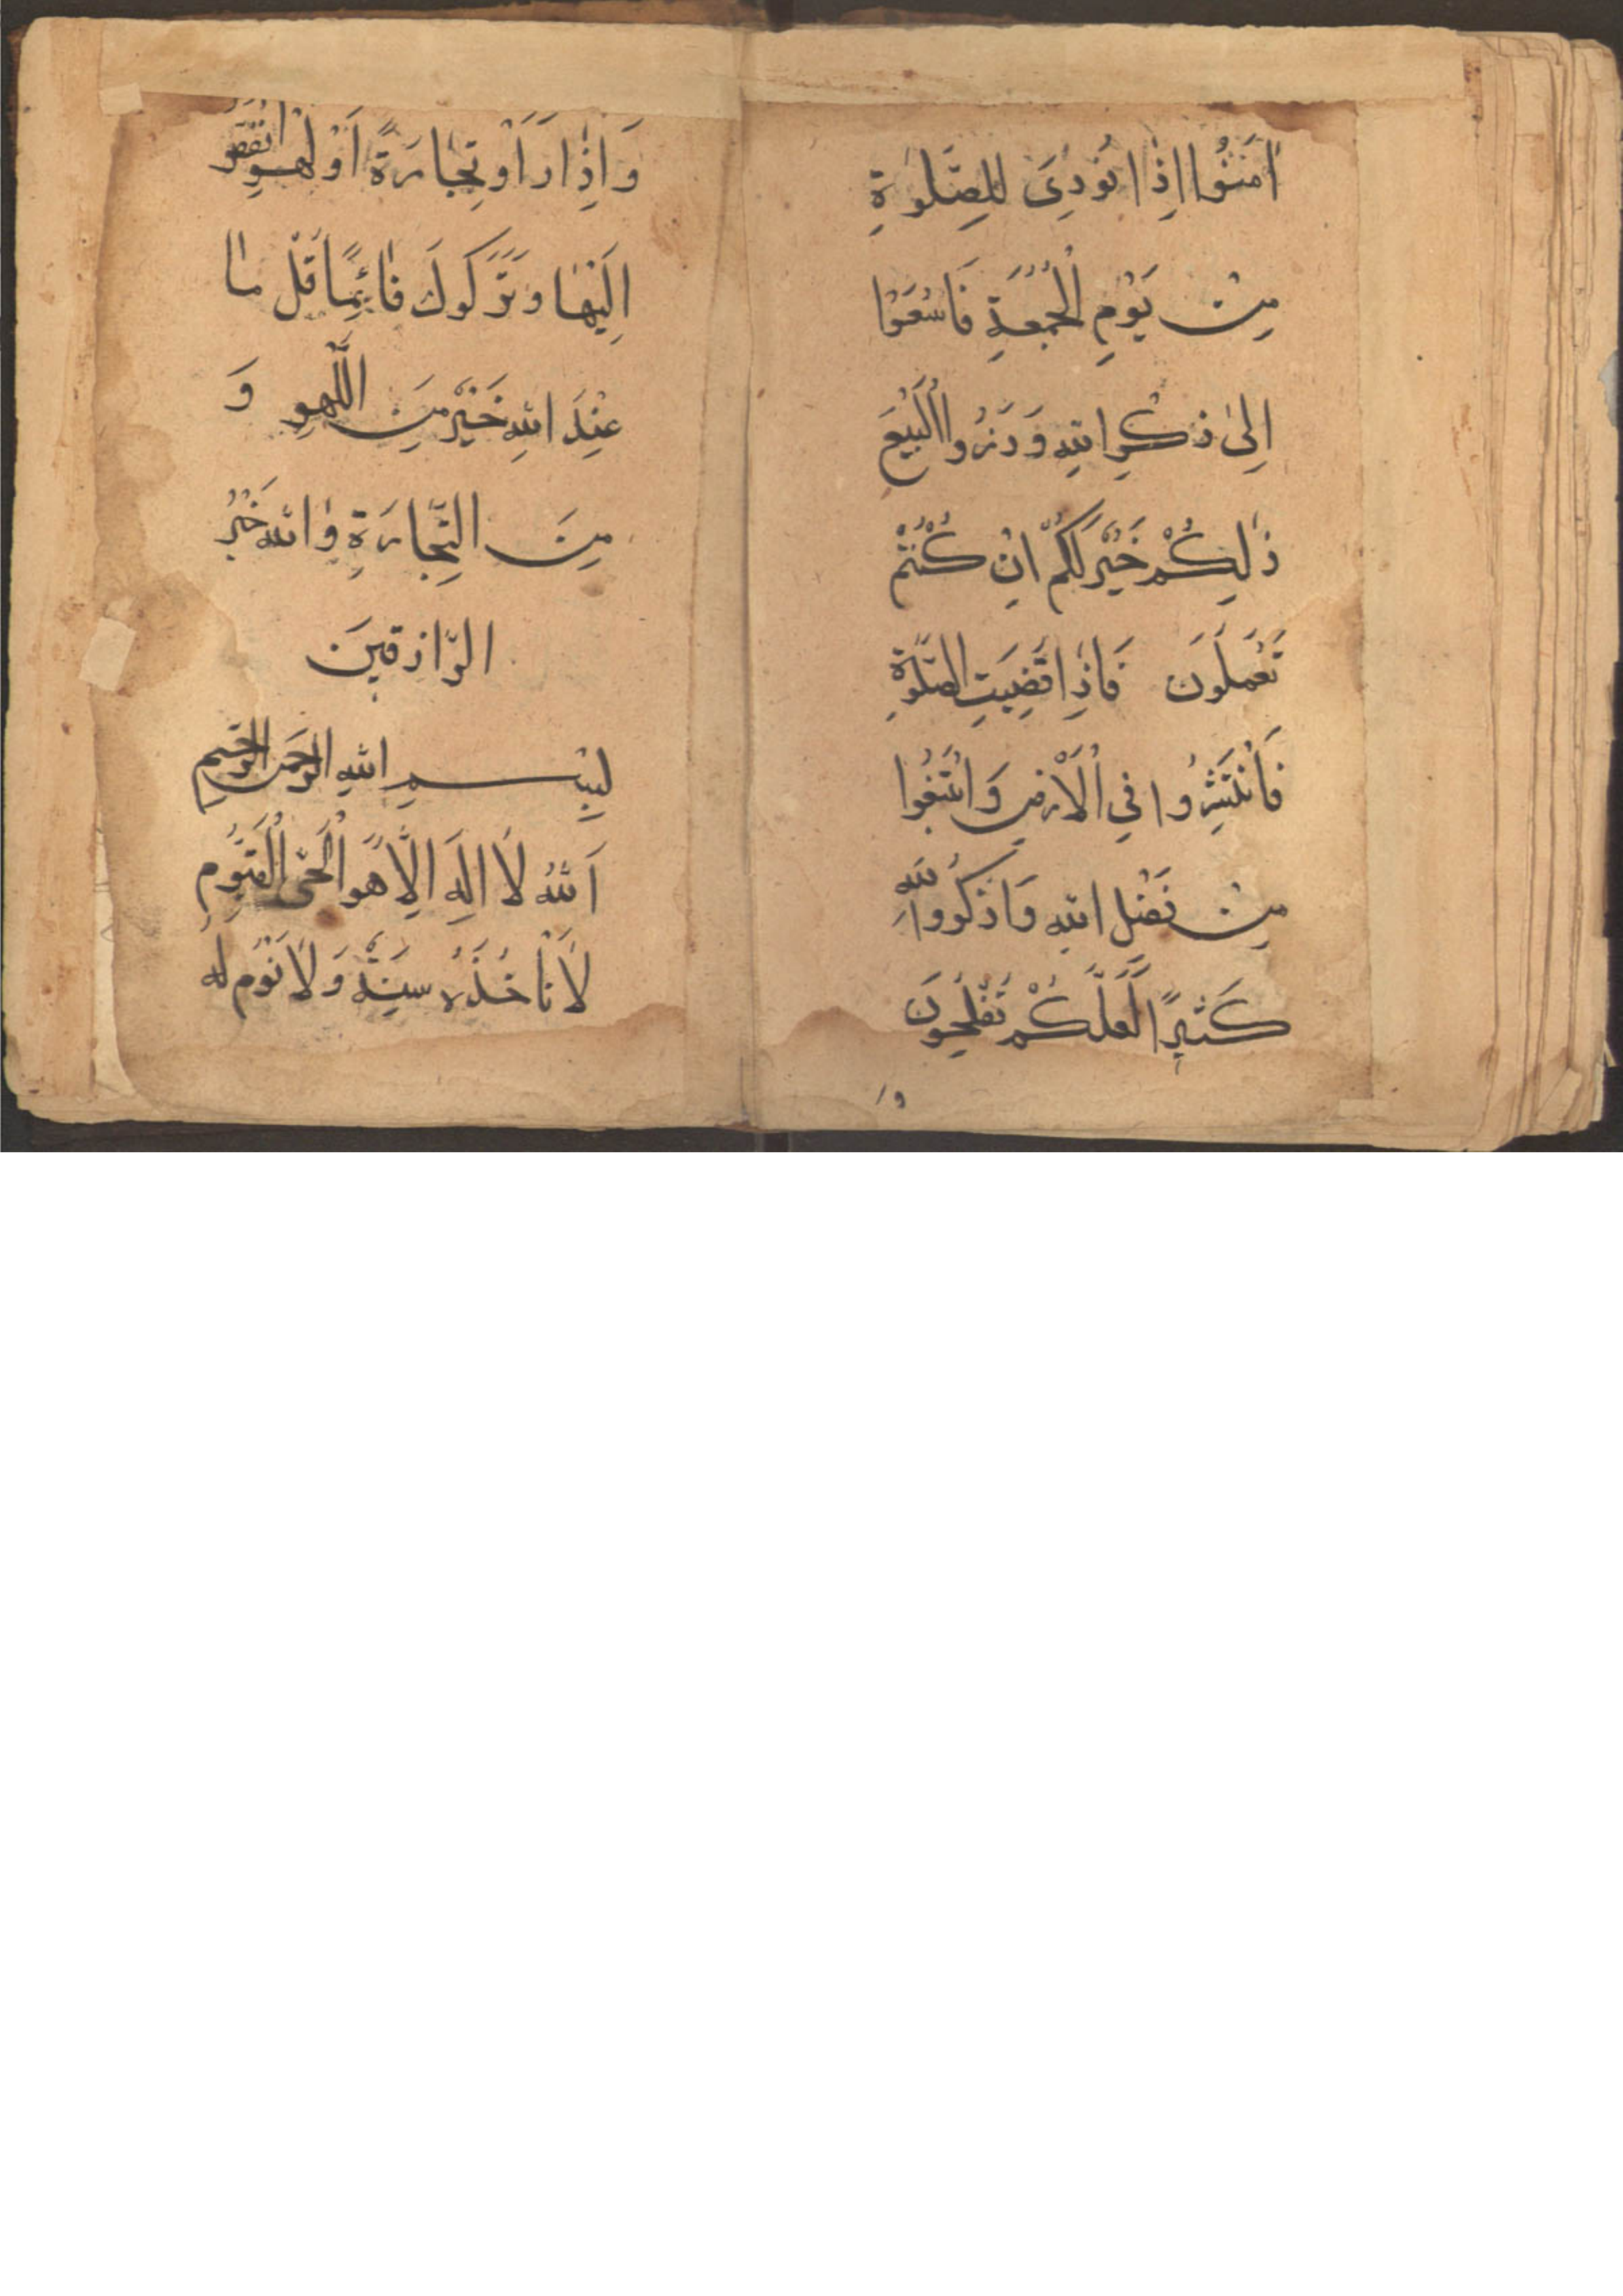 اٰمَنُوا اِذَا نُودِىَ لِلصَّلٰوةِ
مِنْ يَوْمِ الْجُمُعَةِ فَاسْعَوْا
اِلىٰ ذِكْرِ اللّٰهِ وَذَرُوا الْبَيْعَ
ذٰلِكُمْ خَيْرٌ لَكُمْ اِنْ كُنْتُمْ
تَعْمَلُونَ فَاِذَا قُضِيَتِ الصَّلٰوةِ
فَانْتَشِرُوا فِي الْاَرْضِ وَابْتَغُوا
مِنْ فَضْلِ اللّٰهِ وَاذْكُرُوا اللّٰهَ
كَثِيرًا لَعَلَّكُمْ تُفْلِحُونَ
وَاِذَا رَاَوْ تِجَارَةً اَوْ لَهْوٍ انْفَضُّو
اِلَيْهَا وَتَرَكُوكَ قَائِمًا قُلْ مَا
عِنْدَ اللّٰهِ خَيْرٌ مِنَ اللَّهْوِ وَ
مِنَ التِّجَارَةِ وَاللّٰهُ خَيْرُ
الرَّازِقينَ
بِسْمِ اللّٰهِ الرَّحْمٰنِ الرَّحِيمِ
اَللّٰهُ لَا اِلٰهَ اِلَّا هُوَ الْحَىُّ الْقَيُّومِ
لَا تَاْخُذُهُ سِنَةٌ وَلَا نَوْمٌ لَهُ